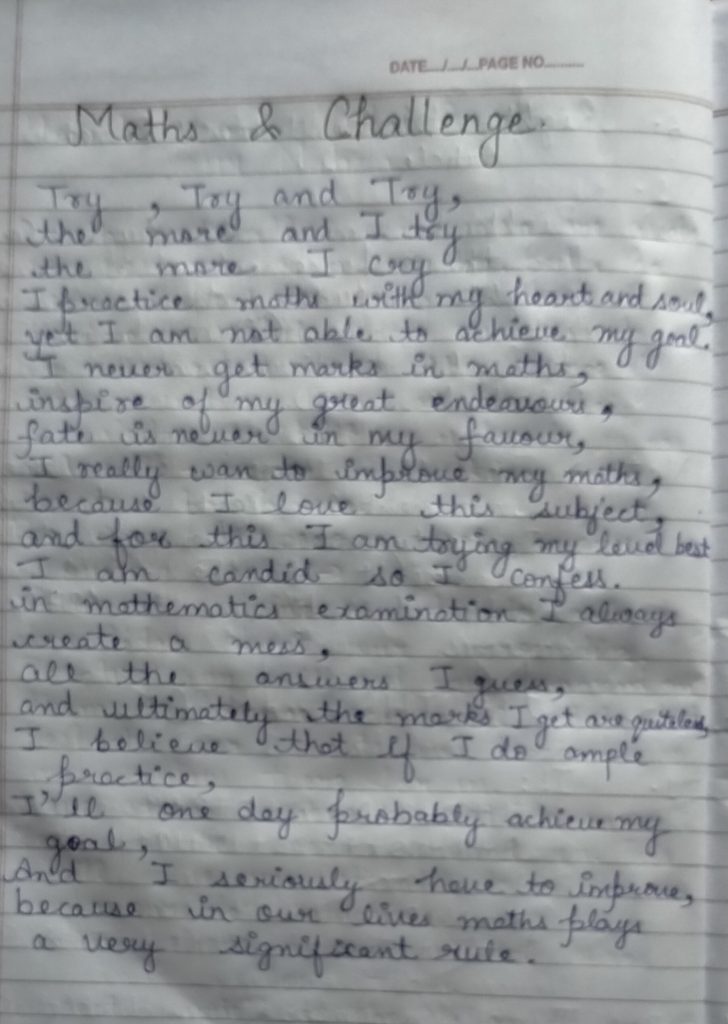 DATE.../.../...PAGE NO..........
Maths & Challenge.
Try , Try and Try,
the more and I try
the more I cry
I practice maths with my heart and soul,
yet I am not able to achieve my goal.
I never get marks in maths,
inspire of my great endeavours,
fate is never in my favour,
I really wan to improve my maths,
because I love this subject,
and for this I am trying my level best
I am candid so I confess.
in mathematics examination I always
create a mess,
all the answers I guess,
and ultimately the marks I get are quite less
I believe that if I do ample
practice,
I'll one day probably achieve my
goal,
And I seriously have to improve,
because in our lives maths plays
a very significant rule.